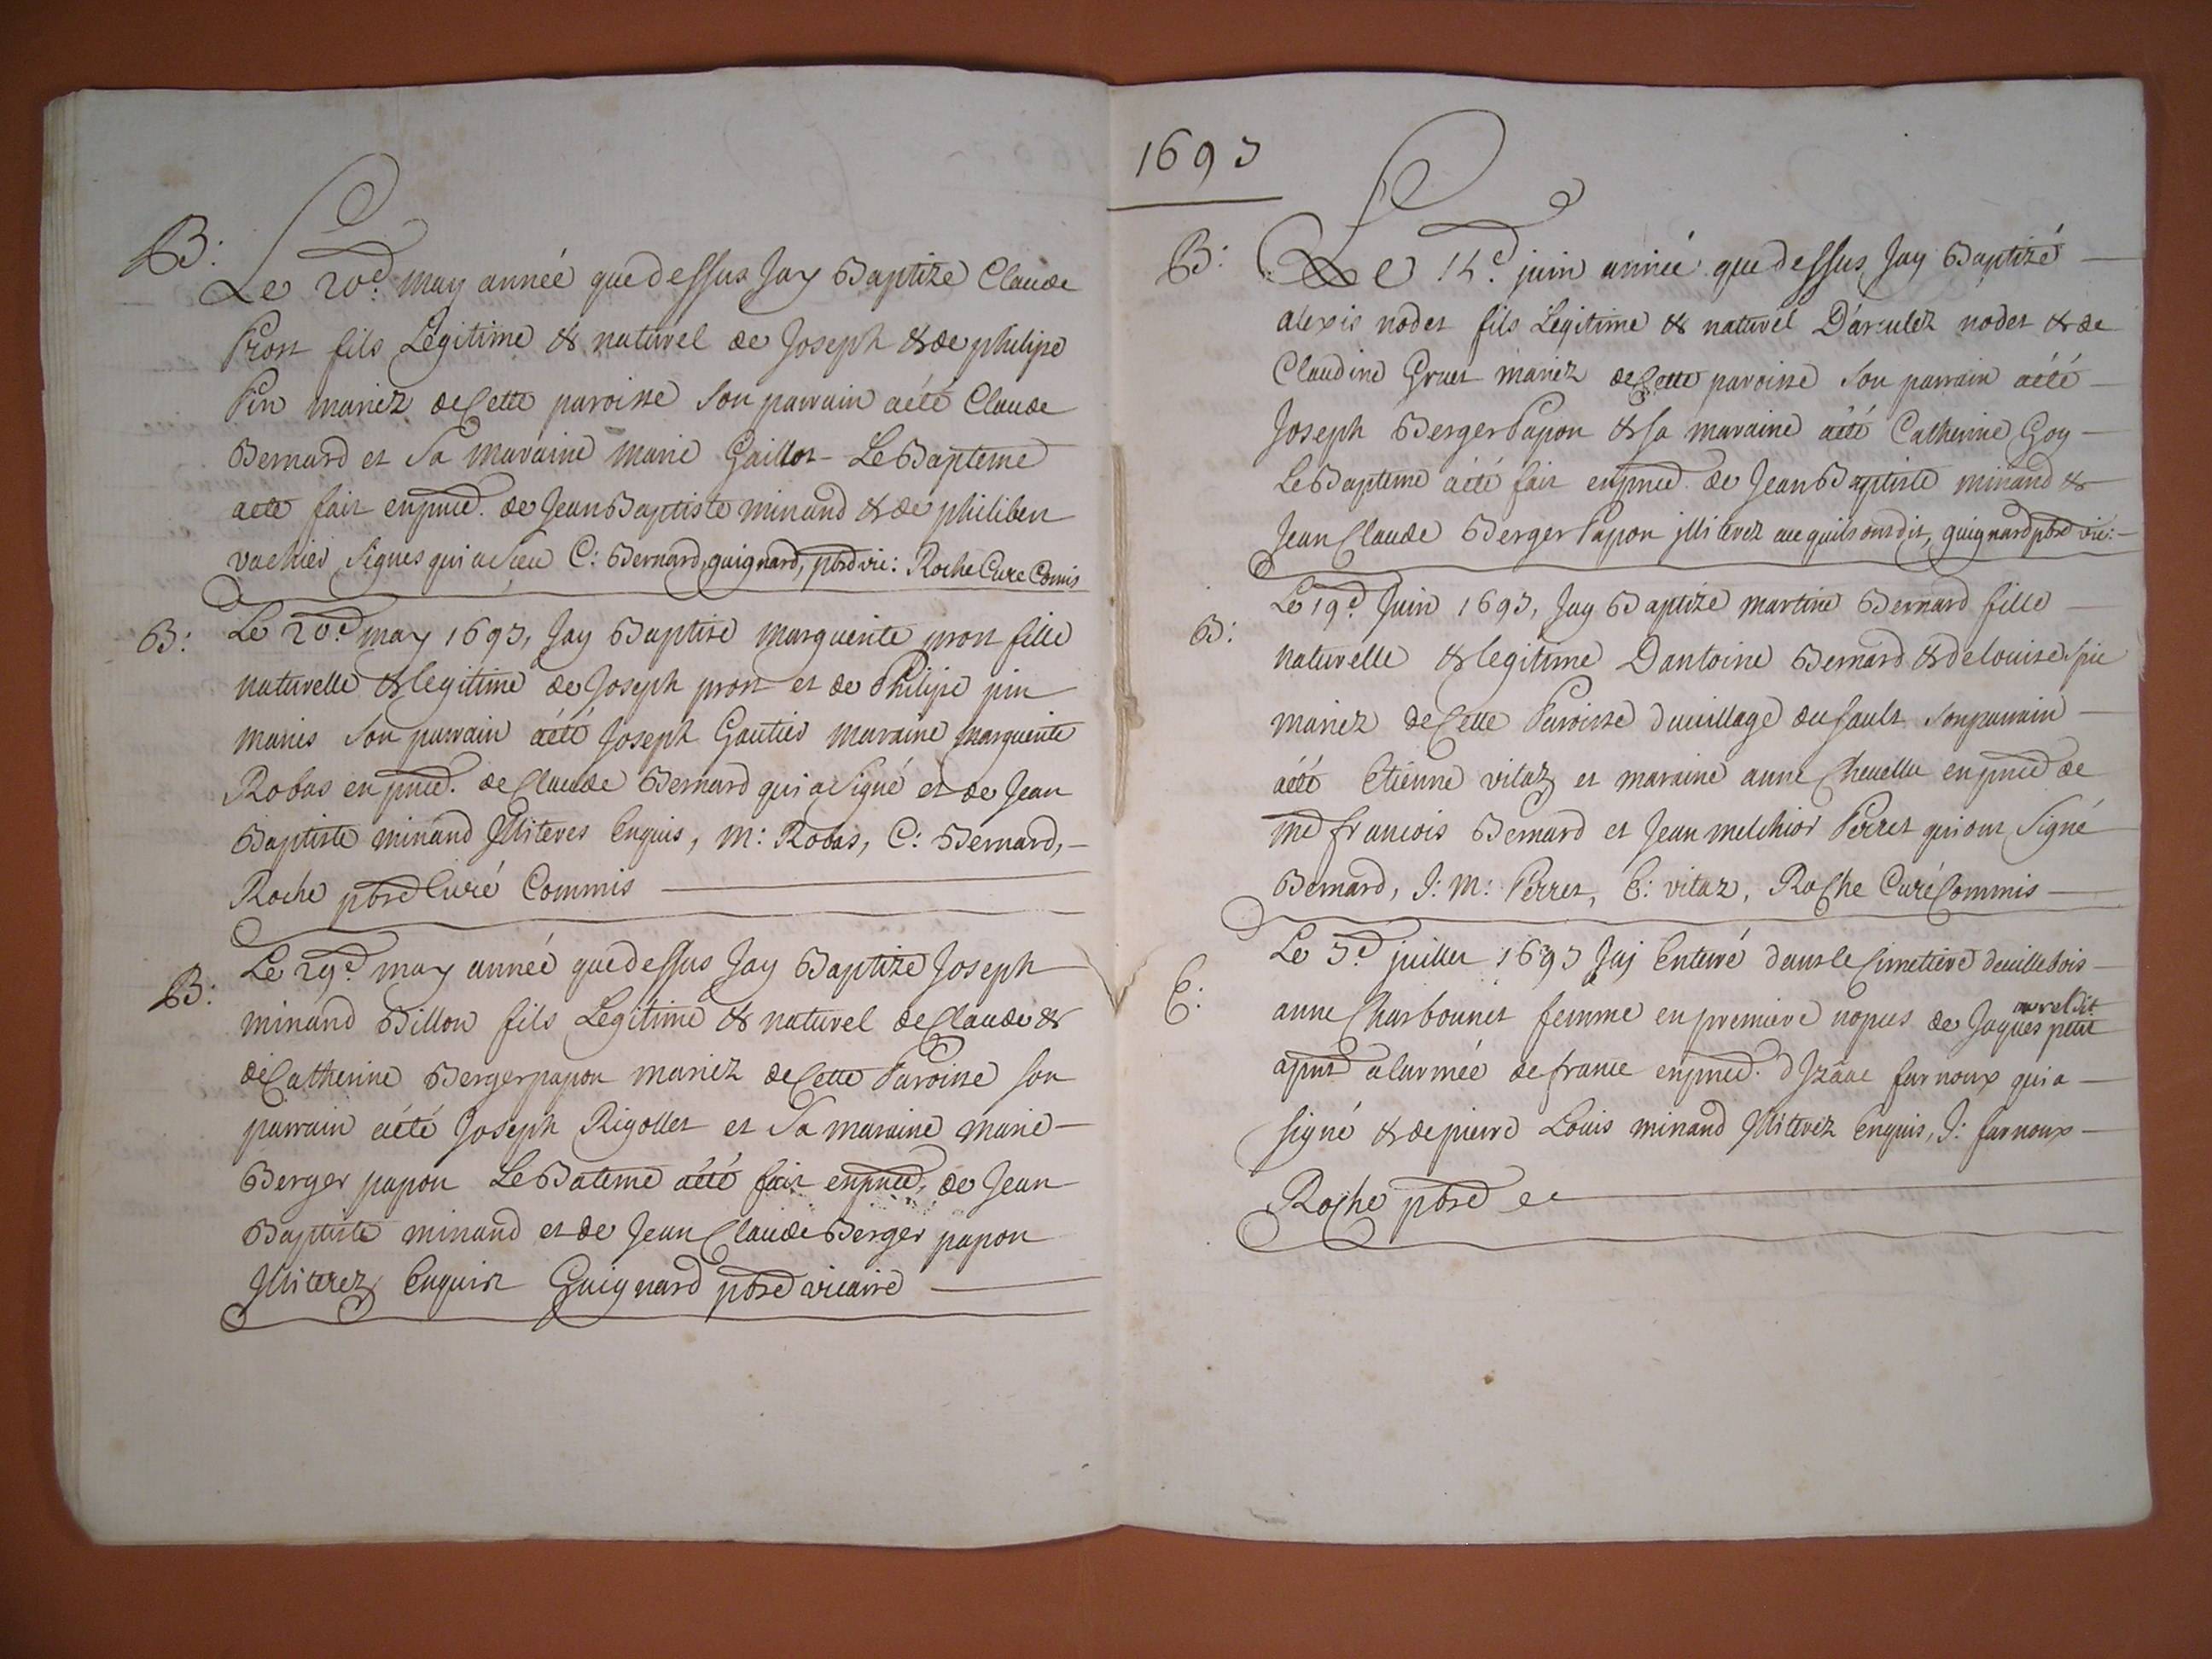 1693
B:
Le 20e. may année que dessus Jay Baptize Claude
Prost fils Legitime & naturel de Joseph & de philipe
Pin mariez de Cette paroisse Son parrain aété Claude
Bernard et Sa maraine marie Gaillot Le Bapteme
aeté fait enpnce. de Jean Baptiste minand & de philibert
vachier Signes qui a Sceu C: Bernard, guignard, pbre vic: Roche Cure Comis
B:
Le 20e. may 1693, Jay Baptise marguerite prost fille
naturelle & legitime de Joseph prost et de Philipe pin
maries Son parrain aété Joseph Gautier maraine marguerite
Robas en pnce. de Claude Bernard qui a Signé et de Jean
Baptiste minand Illiteres Enquis, M: Robas, C: Bernard,
Roche pbre Curé Commis
B:
Le 29e. may année que dessus Jay Baptize Joseph
minand Billon fils Legitime & naturel de Claude &
de Catherine Bergerpapon mariez de Cette Paroisse son
parrain aété Joseph Rigollet et Sa maraine marie
Berger papon Le Bateme aété fait enpnce. de Jean
Baptiste minand et de Jean Claude Berger papon
Illiterez Enquist Guignard pbre vicaire
B:
Le 14e. juin année que dessus Jay Baptizé
alexis nodet fils Légitime & naturel nodet & de
Claudine Gruet mariez de Cette paroisse Son parrain aété
Joseph Berger Papon & sa maraine aété Catherine Goy
Le Bapteme aété fait enpnce. de Jean Baptiste minand &
Jean Claude Berger Papon illiterez ace quils ont dit, guignard pbre vic:
B:
Le 19e. Juin 1693, Jay Baptizé martine Bernard fille
naturelle & legitime Dantoine Bernard & de louise
mariez de Cette Paroisse du village du fault Son parrain
aété Etienne vitaz et maraine anne Chevelu enpnce de
me francois Bernard et Jean melchior Perret qui ont Signé
Bernard, J: M: Perret, E: vitaz, Roche Curé Commis
E:
Le 3e. juillet 1693 Jaj Enterré dans le Cimetiere de villebois
anne Charbonnet femme en premiere nopces de Jaques petit
morel dit
alarmée de france enpnce. d Jzâac farnoux qui a
signé & de pierre Louis minand Illiterez Enquis, J: farnoux
Roche pbre